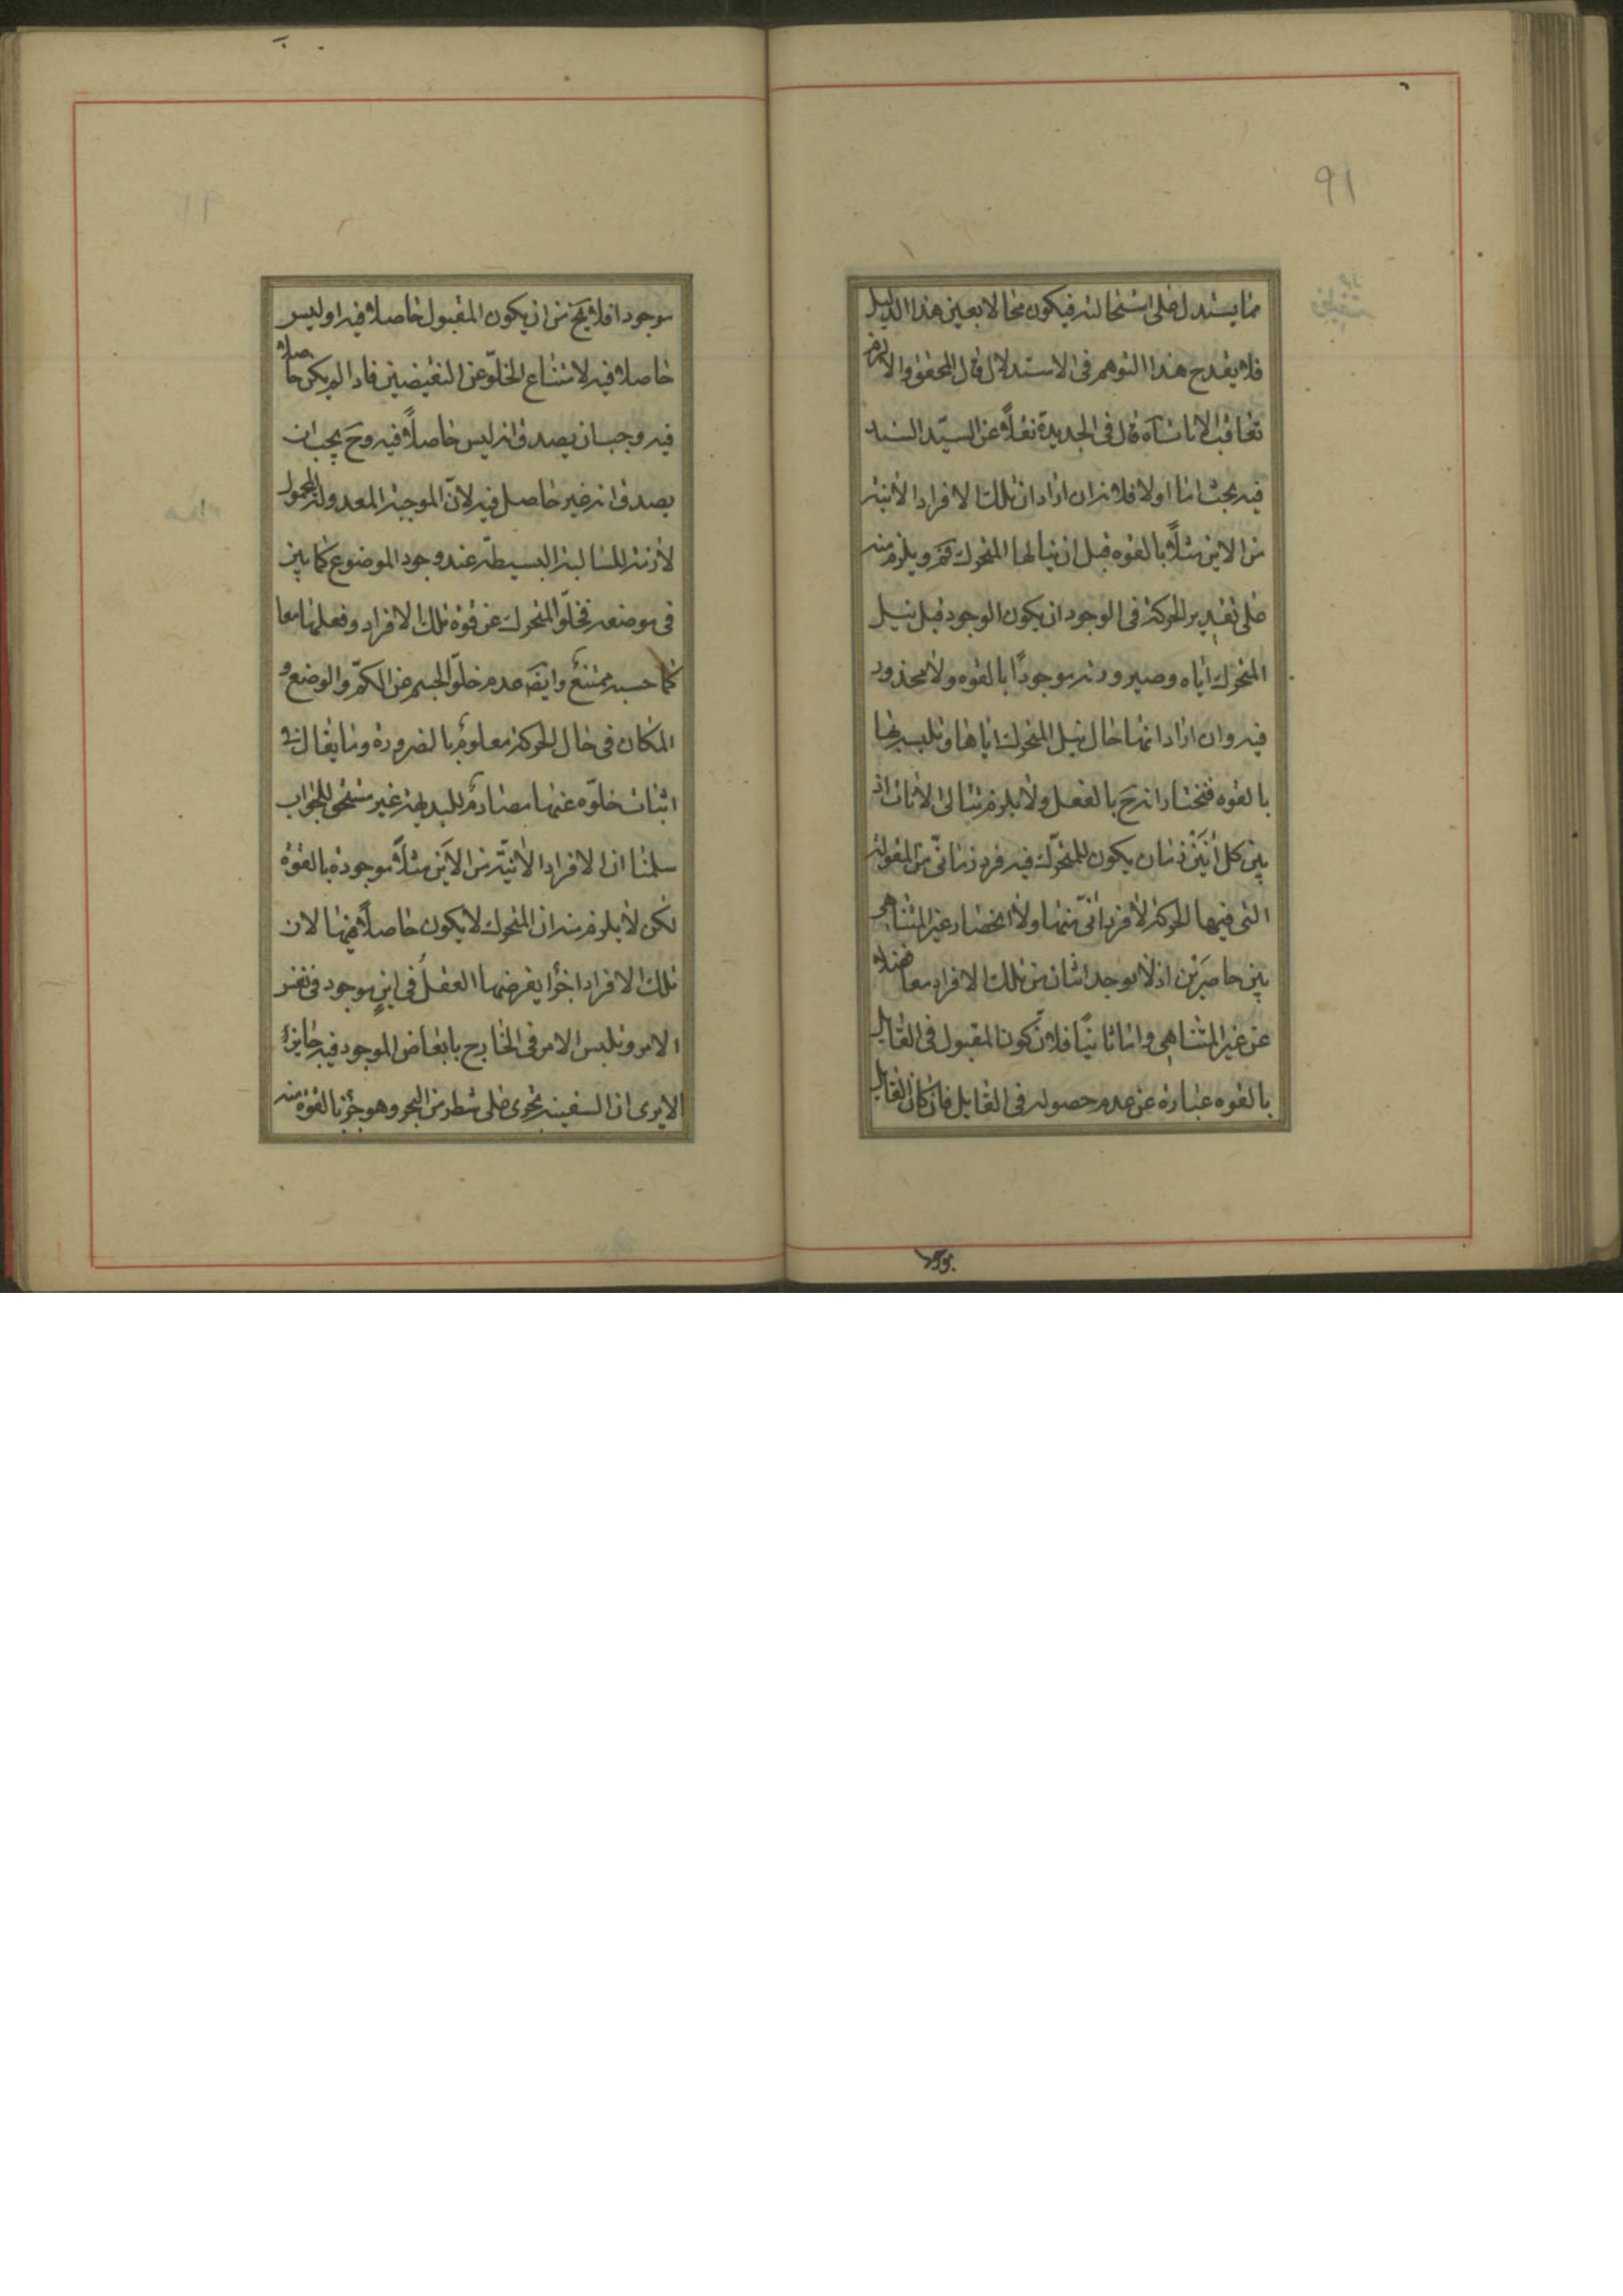 ٩١
مما يستدل على استحالته فيكون محالا بعين هذا الدليل
فلا يقدح هذا التوهم فى الاستدلال قال المحقق والا لزم
تعاقب الانات آه قال فى الجديدة نقلاً عن السيّد السند
فيه بحث اما اولا فلانه ان اراد ان تلك الافراد الآنية
من الاين مثلاً بالقوه قبل ان ينالها المتحرك فم ويلزم منه
على تقدير الحركة فى الوجود ان يكون الوجود قبل نيل
المتحرك اياه وصيرورته موجودًا بالقوه ولا محذور
فيه وان اراد انها حال نيل المتحرك اياها وتلبسه بها
بالقوه فنختار انه ح بالفعل ولا يلزم تتالى الانات اذ
بين كل آنَيْن زمان يكون للمتحرّك فيه فرد زمانىّ من المقولة
التى فيها الحركة لا فرد آنىّ منها ولا انحصار غير المتناهى
بين حاصرَيْن اذ لا يوجد اثنان من تلك الافراد معا فضلا
عن غير المتناهى واما ثانيًا فلانّ كون المقبول فى القابل
بالقوه عبارة عن عدم حصوله فى القابل فان كان القابل
موجودا فلا يخ من ان يكون المقبول حاصلا فيه او ليس
حاصلا فيه لامتناع الخلوّ عن النقيضين فاذا لم يكن حاصلا
فيه وجب ان يصدق انه ليس حاصلاً فيه وح يجب ان
يصدق انه غير حاصل فيه لانّ الموجبة المعدولة المحمول
لازمة للسالبة البسيطة عند وجود الموضوع كما بين
فى موضعه فخلوّ المتحرك عن قوة تلك الافراد وفعلها معا
كما حسبه ممتنع وايضَ عدم خلوّ الجسم عن الكمّ والوضع و
المكان فى حال الحركة معلوم بالضرورة وما يقال فى
اثبات خلوّه عنها مصادم للبديهة غير مستحق للجواب
سلمنا ان الافراد الآنيّة من الاَين مثلاً موجودة بالقوة
لكن لا يلزم منه ان المتحرك لا يكون حاصلاً فيها لان
تلك الافراد اجزأ يفرضها العقلُ فى اينٍ موجود فى نفس
الامر وتلبس الامر فى الخارج بابعاض الموجود فيه جايز
الا يرى ان السفينه تجرى على شطر من البحر وهو جزء بالقوة منه